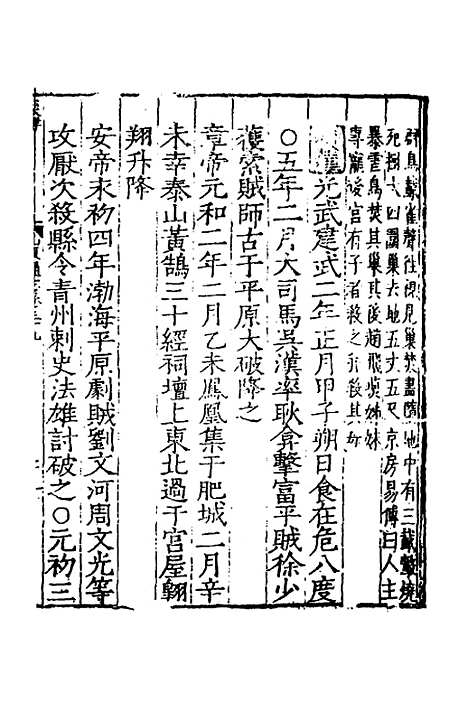 群鳥數雀聲往視見巢焚盡墮地中有三㲉鷇燒
死樹大四圍巢去地五丈五尺京房易傳曰人主
暴虐鳥焚其巢其後趙飛燕姊妹
專寵後宮有子者殺之并殺其母
漢光武建武二年正月甲子朔日食在危八度
○五年二月大司馬吳漢率耿弇擊富平賊徐少
獲索賊師古于平原大破降之
章帝元和二年二月乙未鳳凰集于肥城二月辛
未幸泰山黃鵠三十經祠壇上東北過于宮屋翱
翔升降
安帝末初四年渤海平原劇賊劉文河周文光等
攻厭次殺縣令青州刺史法雄討破之○元初三